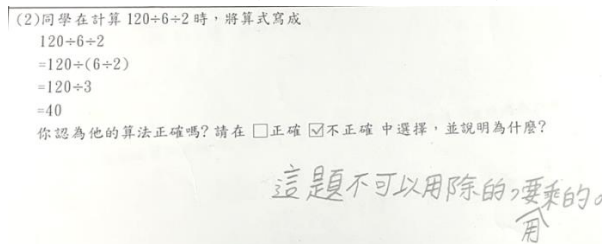 (2)同學在計算 120÷6÷2 時，將算式寫成
120÷6÷2
=120÷(6÷2)
=120÷3
=40
你認為他的算法正確嗎? 請在 □正確 ☑不正確 中選擇，並說明為什麼?
這題不可以用除的，要用乘的。